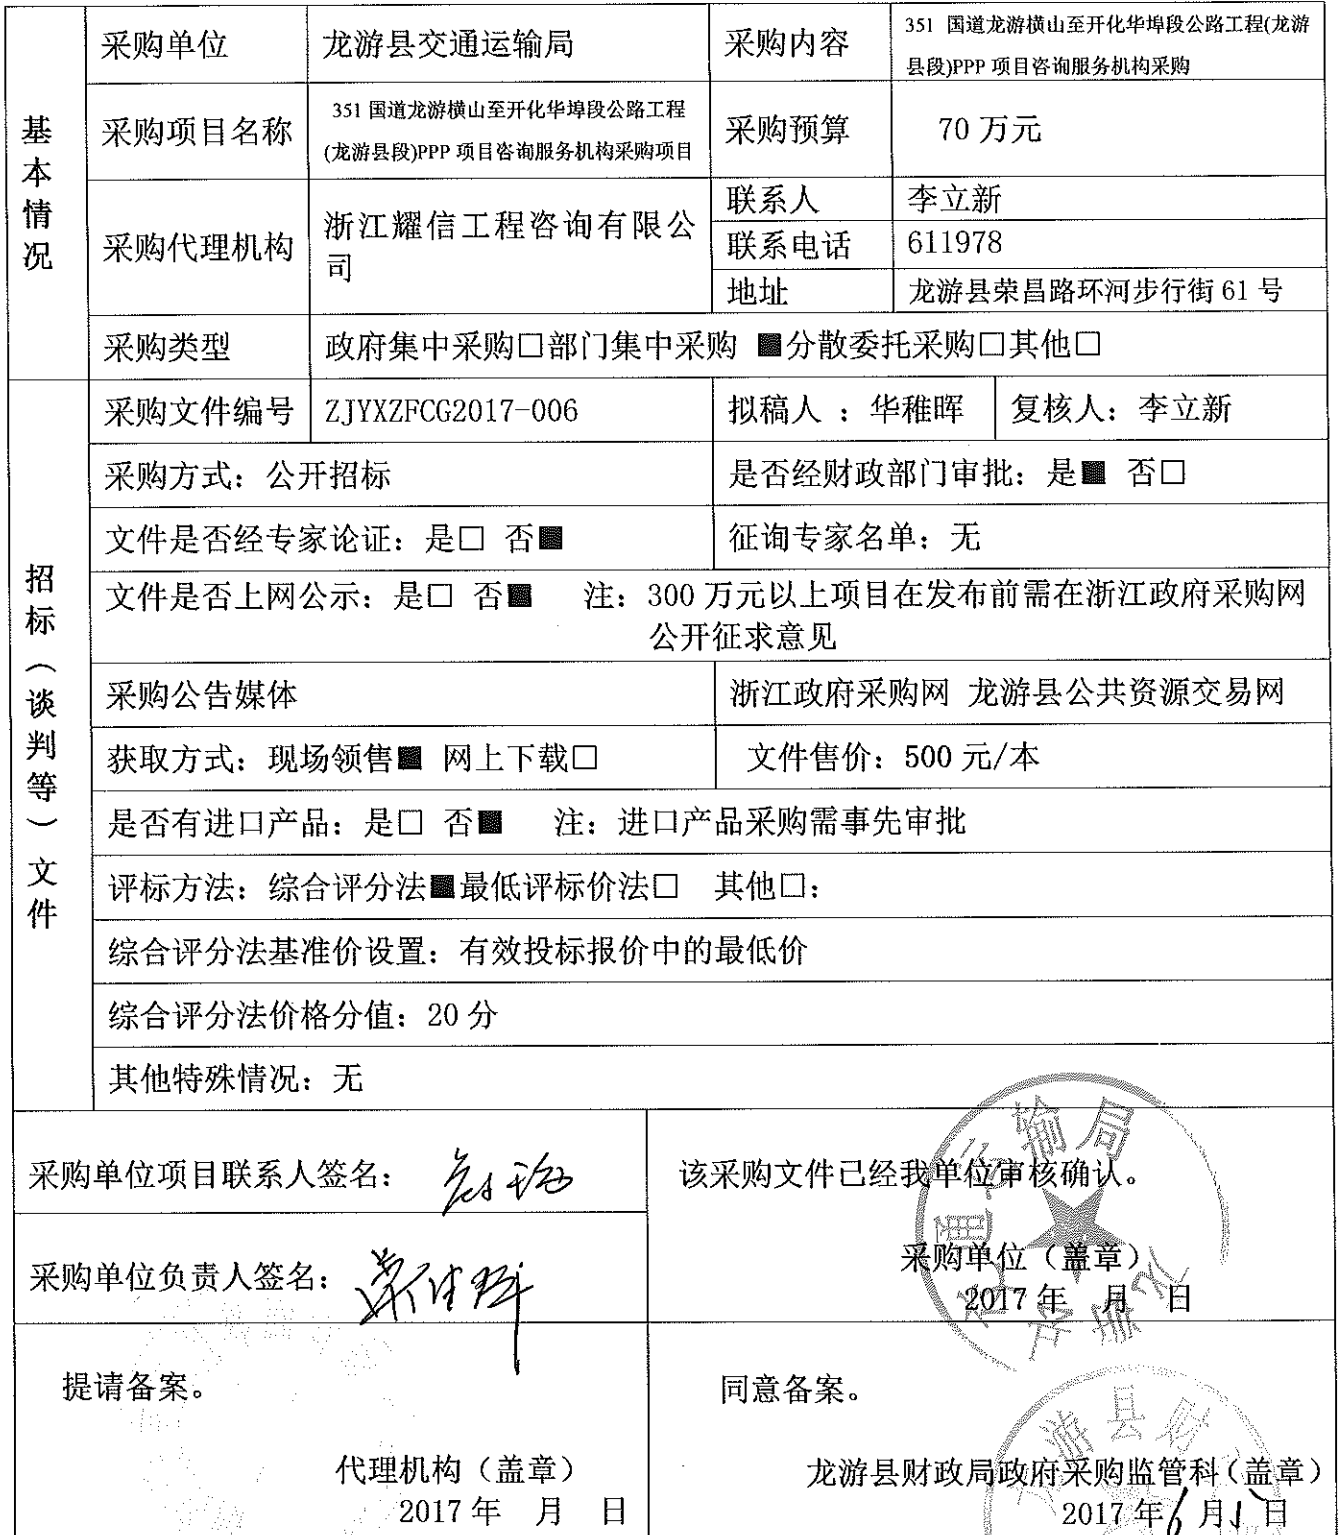 基本情况
采购单位
龙游县交通运输局
采购内容
351 国道龙游横山至开化华埠段公路工程(龙游
县段)PPP 项目咨询服务机构采购
采购项目名称
351 国道龙游横山至开化华埠段公路工程
(龙游县段)PPP 项目咨询服务机构采购项目
采购预算
70 万元
采购代理机构
浙江耀信工程咨询有限公
司
联系人
李立新
联系电话
611978
地址
龙游县荣昌路环河步行街 61 号
采购类型
政府集中采购□部门集中采购 ■分散委托采购□其他□
招标（谈判等）文件
采购文件编号
ZJYXZFCG2017-006
拟稿人 ：华稚晖
复核人：李立新
采购方式：公开招标
是否经财政部门审批：是■ 否□
文件是否经专家论证：是□ 否■
征询专家名单：无
文件是否上网公示：是□ 否■ 注：300 万元以上项目在发布前需在浙江政府采购网
公开征求意见
采购公告媒体
浙江政府采购网 龙游县公共资源交易网
获取方式：现场领售■ 网上下载□
文件售价：500 元/本
是否有进口产品：是□ 否■ 注：进口产品采购需事先审批
评标方法：综合评分法■最低评标价法□ 其他□：
综合评分法基准价设置：有效投标报价中的最低价
综合评分法价格分值：20 分
其他特殊情况：无
采购单位项目联系人签名：
该采购文件已经我单位审核确认。
采购单位（盖章）
2017 年 月 日
采购单位负责人签名：
提请备案。
代理机构（盖章）
2017 年 月 日
同意备案。
龙游县财政局政府采购监管科（盖章）
2017 年 6 月 日